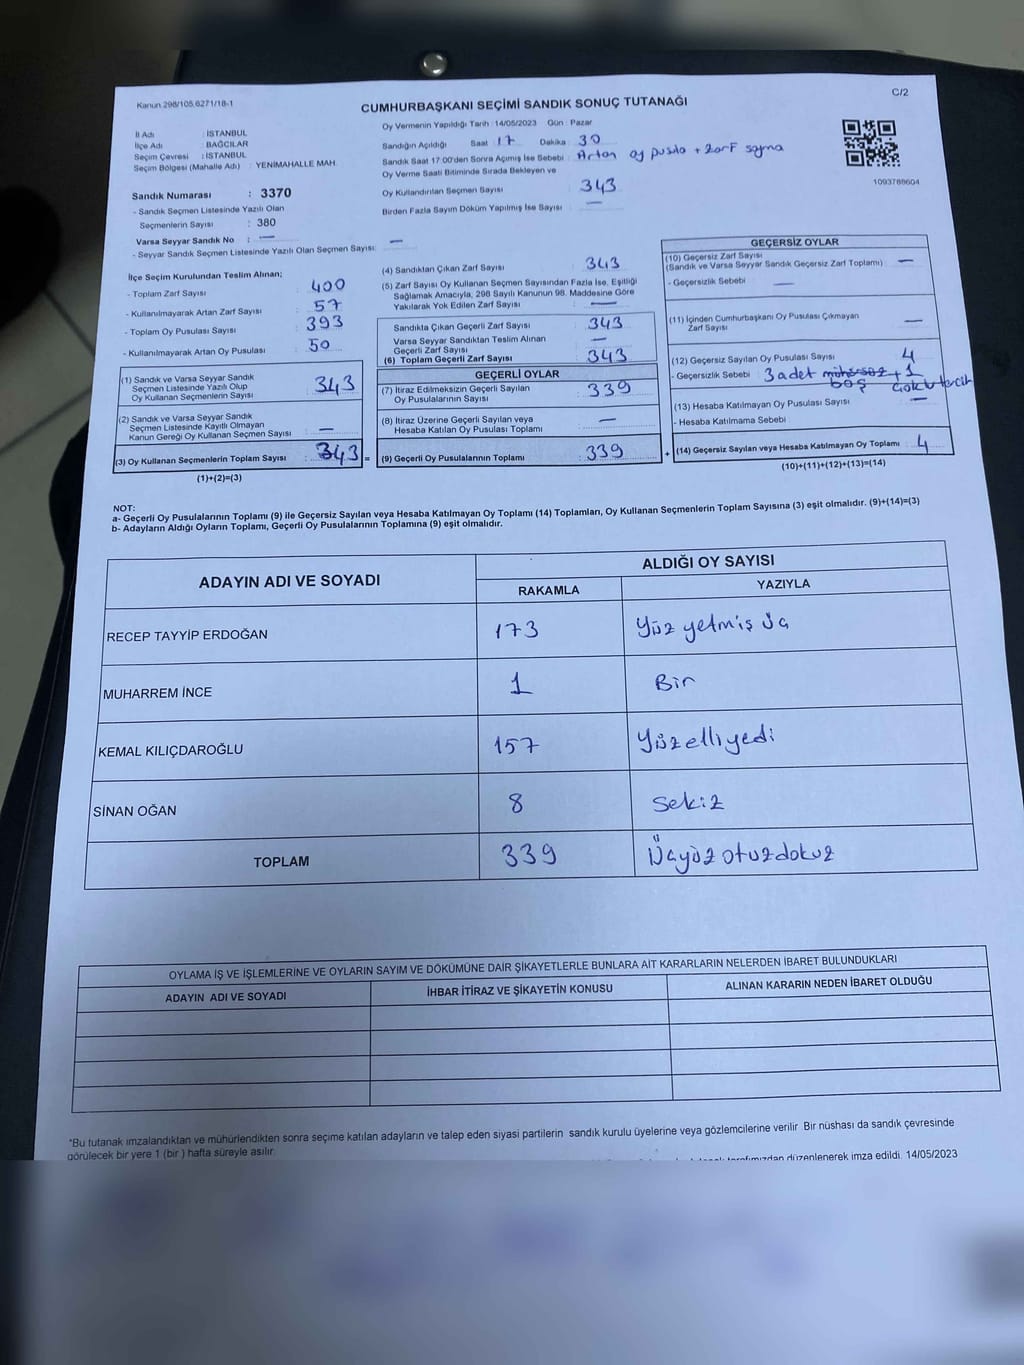 Kanun 298/105,6271/18-1
C/2
CUMHURBAŞKANI SEÇİMİ SANDIK SONUÇ TUTANAĞI
İl Adı : İSTANBUL
İlçe Adı : BAĞCILAR
Seçim Çevresi : İSTANBUL
Seçim Bölgesi (Mahalle Adı) : YENİMAHALLE MAH.
Sandık Numarası : 3370
- Sandık Seçmen Listesinde Yazılı Olan
Seçmenlerin Sayısı : 380
Varsa Seyyar Sandık No : —
- Seyyar Sandık Seçmen Listesinde Yazılı Olan Seçmen Sayısı: —
Oy Vermenin Yapıldığı Tarih : 14/05/2023 Gün : Pazar
Sandığın Açıldığı Saat 17 Dakika 30
Sandık Saat 17:00'den Sonra Açımış İse Sebebi : Artan oy pusula + zarf sayma
Oy Verme Saati Bitiminde Sırada Bekleyen ve
Oy Kullandırılan Seçmen Sayısı : 343
Birden Fazla Sayım Döküm Yapılmış İse Sayısı : —
1093788604
İlçe Seçim Kurulundan Teslim Alınan;
- Toplam Zarf Sayısı : 400
- Kullanılmayarak Artan Zarf Sayısı : 57
- Toplam Oy Pusulası Sayısı : 393
- Kullanılmayarak Artan Oy Pusulası : 50
(1) Sandık ve Varsa Seyyar Sandık
Seçmen Listesinde Yazılı Olup
Oy Kullanan Seçmenlerin Sayısı : 343
(2) Sandık ve Varsa Seyyar Sandık
Seçmen Listesinde Kayıtlı Olmayan
Kanun Gereği Oy Kullanan Seçmen Sayısı : —
(3) Oy Kullanan Seçmenlerin Toplam Sayısı : 343 =
(1)+(2)=(3)
(4) Sandıktan Çıkan Zarf Sayısı : 343
(5) Zarf Sayısı Oy Kullanan Seçmen Sayısından Fazla İse, Eşitliği
Sağlamak Amacıyla, 298 Sayılı Kanunun 98. Maddesine Göre
Yakılarak Yok Edilen Zarf Sayısı : —
Sandıkta Çıkan Geçerli Zarf Sayısı : 343
Varsa Seyyar Sandıktan Teslim Alınan
Geçerli Zarf Sayısı : —
(6) Toplam Geçerli Zarf Sayısı : 343
GEÇERLİ OYLAR
(7) İtiraz Edilmeksizin Geçerli Sayılan
Oy Pusulalarının Sayısı : 339
(8) İtiraz Üzerine Geçerli Sayılan veya
Hesaba Katılan Oy Pusulası Toplamı : —
(9) Geçerli Oy Pusulalarının Toplamı : 339 +
GEÇERSİZ OYLAR
(10) Geçersiz Zarf Sayısı
(Sandık ve Varsa Seyyar Sandık Geçersiz Zarf Toplamı) : —
- Geçersizlik Sebebi : —
(11) İçinden Cumhurbaşkanı Oy Pusulası Çıkmayan
Zarf Sayısı : —
(12) Geçersiz Sayılan Oy Pusulası Sayısı : 4
- Geçersizlik Sebebi : 3 adet mühürsüz + 1
boş çoklu tercih
(13) Hesaba Katılmayan Oy Pusulası Sayısı : —
- Hesaba Katılmama Sebebi :
(14) Geçersiz Sayılan veya Hesaba Katılmayan Oy Toplamı : 4
(10)+(11)+(12)+(13)=(14)
NOT:
a- Geçerli Oy Pusulalarının Toplamı (9) ile Geçersiz Sayılan veya Hesaba Katılmayan Oy Toplamı (14) Toplamları, Oy Kullanan Seçmenlerin Toplam Sayısına (3) eşit olmalıdır. (9)+(14)=(3)
b- Adayların Aldığı Oyların Toplamı, Geçerli Oy Pusulalarının Toplamına (9) eşit olmalıdır.
ADAYIN ADI VE SOYADI
ALDIĞI OY SAYISI
RAKAMLA YAZIYLA
RECEP TAYYİP ERDOĞAN 173 Yüz yetmiş üç
MUHARREM İNCE 1 Bir
KEMAL KILIÇDAROĞLU 157 Yüzelliyedi
SİNAN OĞAN 8 Sekiz
TOPLAM 339 Üçyüz otuzdokuz
OYLAMA İŞ VE İŞLEMLERİNE VE OYLARIN SAYIM VE DÖKÜMÜNE DAİR ŞİKAYETLERLE BUNLARA AİT KARARLARIN NELERDEN İBARET BULUNDUKLARI
ADAYIN ADI VE SOYADI İHBAR İTİRAZ VE ŞİKAYETİN KONUSU ALINAN KARARIN NEDEN İBARET OLDUĞU
*Bu tutanak imzalandıktan ve mühürlendikten sonra seçime katılan adayların ve talep eden siyasi partilerin sandık kurulu üyelerine veya gözlemcilerine verilir. Bir nüshası da sandık çevresinde
görülecek bir yere 1 (bir ) hafta süreyle asılır.
tarafımızdan düzenlenerek imza edildi. 14/05/2023